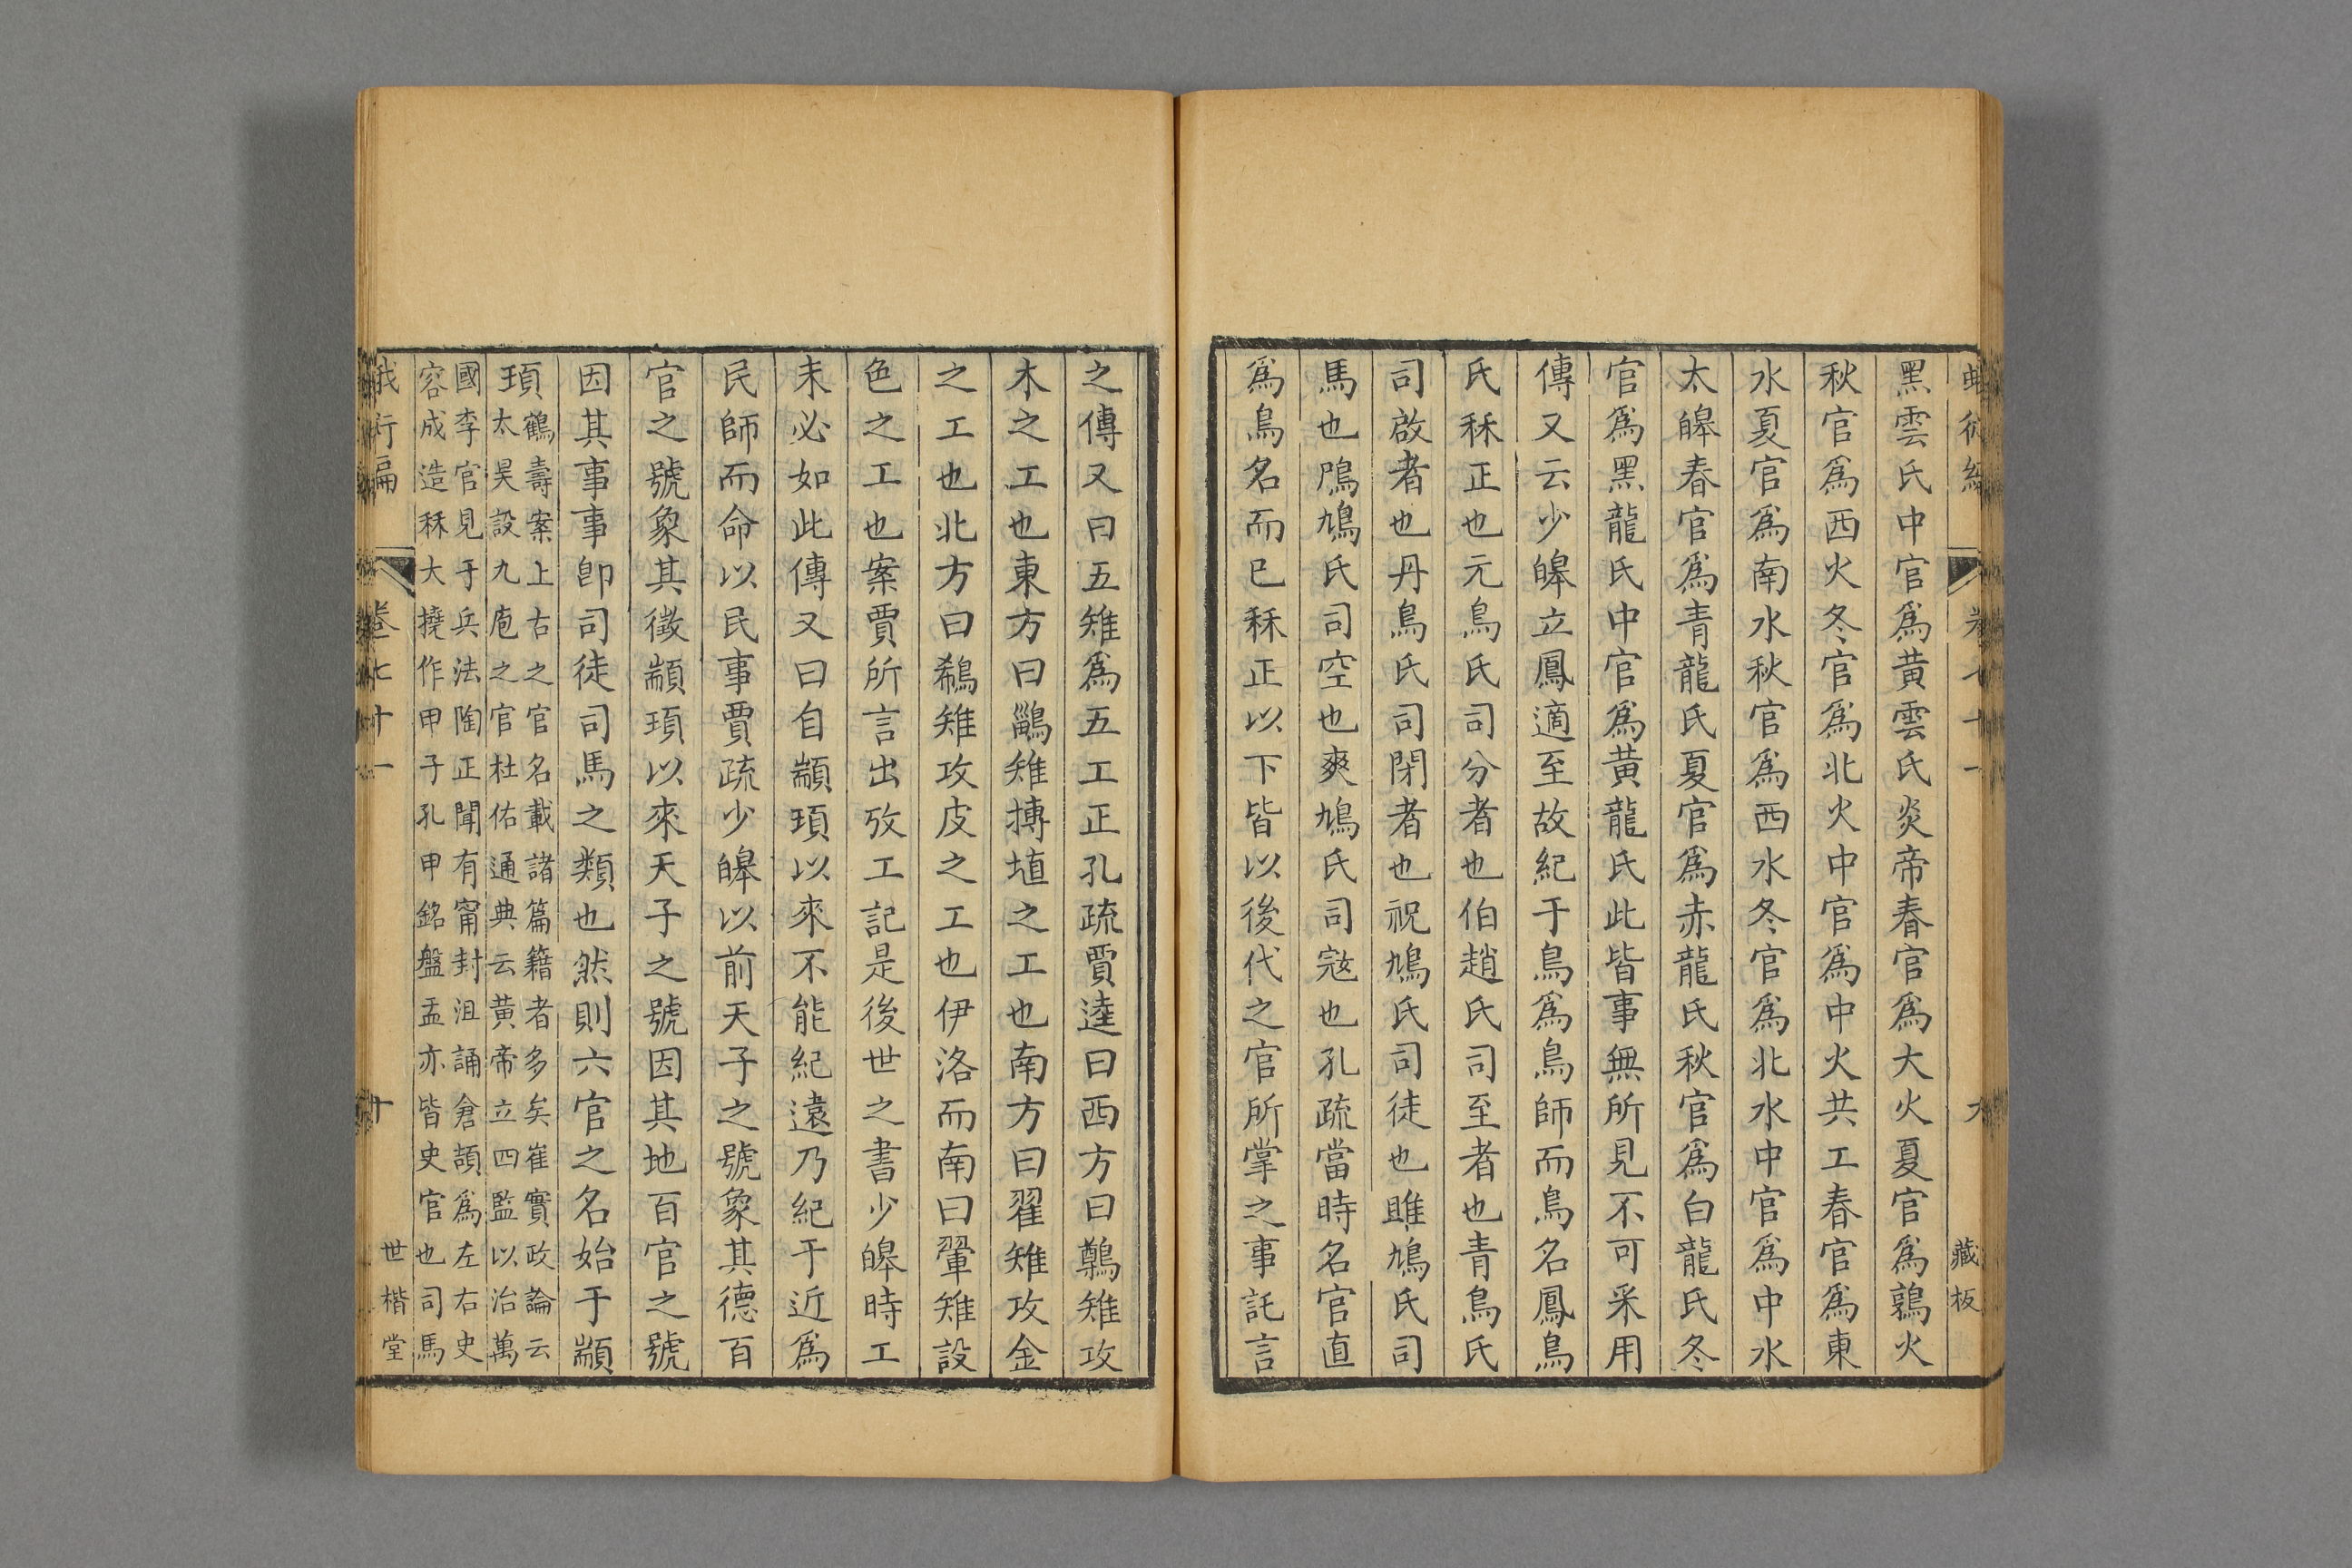 黑雲氏中官爲黃雲氏炎帝春官爲大火夏官爲鶉火
秋官爲西火冬官爲北火中官爲中火共工春官爲東
水夏官爲南水秋官爲西水冬官爲北水中官爲中水
太皞春官爲青龍氏夏官爲赤龍氏秋官爲白龍氏冬
官爲黑龍氏中官爲黃龍氏此皆事無所見不可采用
傳又云少皞立鳳適至故紀于鳥爲鳥師而鳥名鳳鳥
氏秝正也元鳥氏司分者也伯趙氏司至者也青鳥氏
司啟者也丹鳥氏司閉者也祝鳩氏司徒也雎鳩氏司
馬也鳲鳩氏司空也爽鳩氏司寇也孔疏當時名官直
爲鳥名而已秝正以下皆以後代之官所掌之事託言
藏板
之傳又曰五雉爲五工正孔疏賈逵曰西方曰鷷雉攻
木之工也東方曰鶅雉摶埴之工也南方曰翟雉攻金
之工也北方曰鵗雉攻皮之工也伊洛而南曰翬雉設
色之工也案賈所言出攷工記是後世之書少皞時工
未必如此傳又曰自顓頊以來不能紀遠乃紀于近爲
民師而命以民事賈疏少皞以前天子之號象其德百
官之號象其徵顓頊以來天子之號因其地百官之號
因其事事卽司徒司馬之類也然則六官之名始于顓
頊
鶴壽案上古之官名載諸篇籍者多矣崔實政論云
太昊設九庖之官杜佑通典云黃帝立四監以治萬
國李官見于兵法陶正聞有甯封沮誦倉頡爲左右史
容成造秝大撓作甲子孔甲銘盤盂亦皆史官也司馬
蛾術編
卷七十一
十
世楷堂